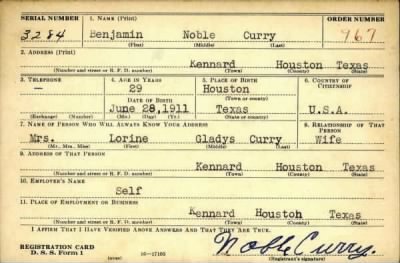 SERIAL NUMBER 1. NAME (Print) ORDER NUMBER
3284 Benjamin Noble Curry 967
(First) (Middle) (Last)
2. ADDRESS (Print)
Kennard Houston Texas
(Number and street or R. F. D. number) (Town) (County) (State)
3. TELEPHONE 4. AGE IN YEARS 5. PLACE OF BIRTH 6. COUNTRY OF CITIZENSHIP
— 29 Houston
DATE OF BIRTH (Town or county)
June 28,1911 Texas U.S.A.
(Exchange) (Number) (Mo.) (Day) (Yr.) (State or country)
7. NAME OF PERSON WHO WILL ALWAYS KNOW YOUR ADDRESS 8. RELATIONSHIP OF THAT PERSON
Mrs. Lorine Gladys Curry Wife
(Mr., Mrs., Miss) (First) (Middle) (Last)
9. ADDRESS OF THAT PERSON
Kennard Houston Texas
(Number and street or R. F. D. number) (Town) (County) (State)
10. EMPLOYER'S NAME
Self
11. PLACE OF EMPLOYMENT OR BUSINESS
Kennard Houston Texas
(Number and street or R. F. D. number) (Town) (County) (State)
I AFFIRM THAT I HAVE VERIFIED ABOVE ANSWERS AND THAT THEY ARE TRUE.
REGISTRATION CARD
D. S. S. Form 1 (over) 16—17105 Noble Curry.
(Registrant's signature)